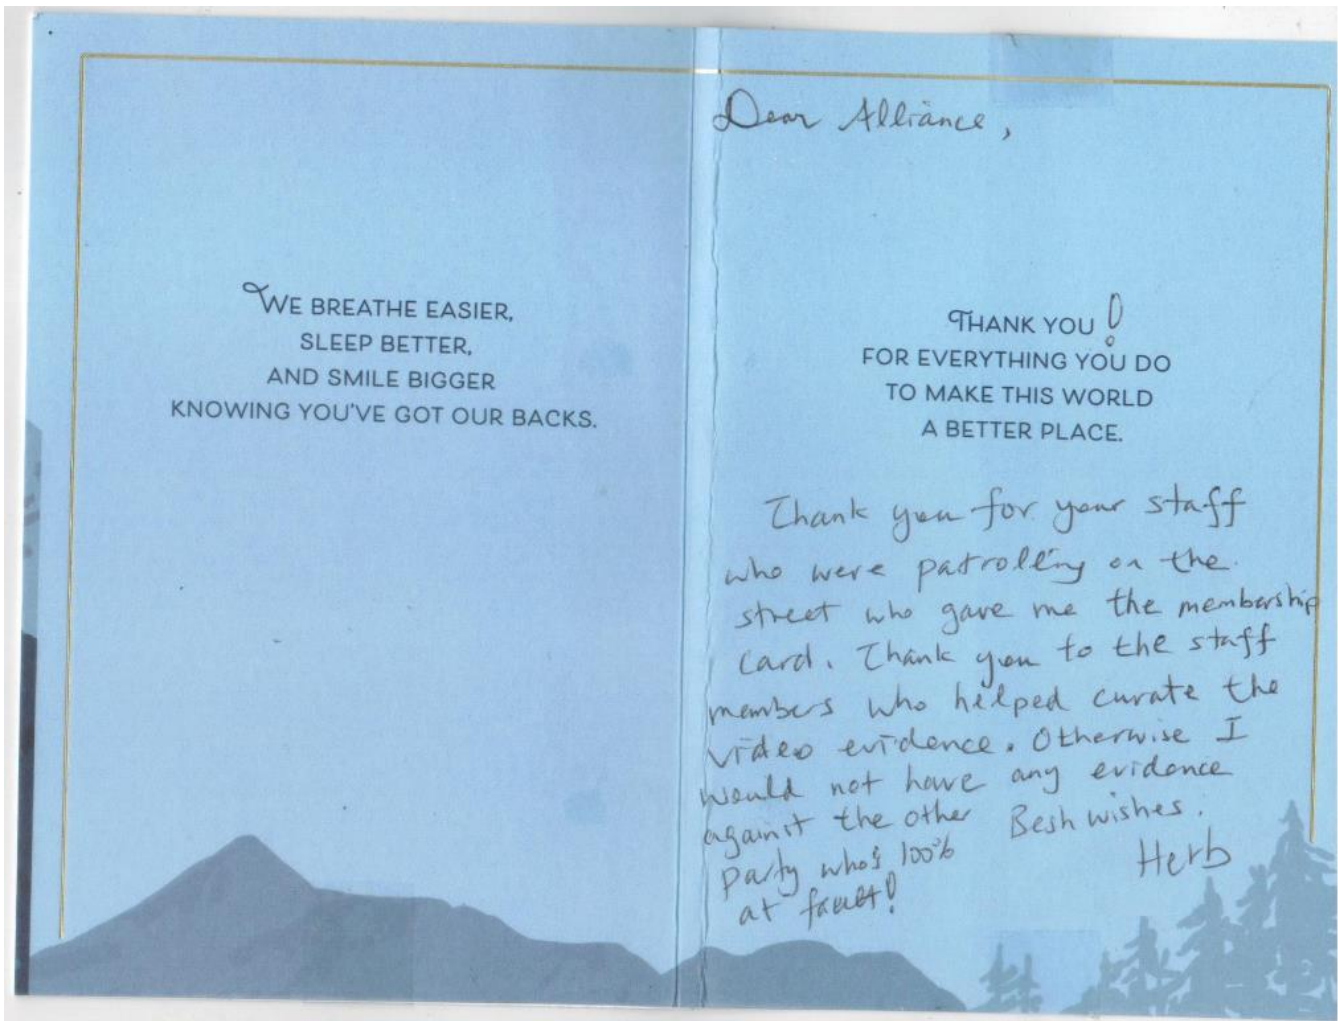 WE BREATHE EASIER,
SLEEP BETTER,
AND SMILE BIGGER
KNOWING YOU'VE GOT OUR BACKS.
Dear Alliance,
THANK YOU!
FOR EVERYTHING YOU DO
TO MAKE THIS WORLD
A BETTER PLACE.
Thank you for your staff
who were patrolling on the
street who gave me the membership
card. Thank you to the staff
members who helped curate the
video evidence. Otherwise I
would not have any evidence
against the other
party who's 100%
at fault!
Besh wishes.
Herb